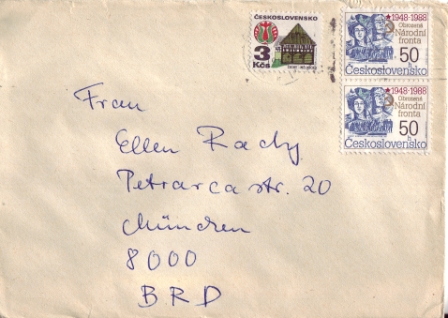 ČESKOSLOVENSKO
3
Kčs
1948-1988
Obrozená
Národní
fronta
50
h
Československo
1948-1988
Obrozená
Národní
fronta
50
h
Československo
Frau
Ellen Rady
Petrarcastr. 20
München
8000
BRD